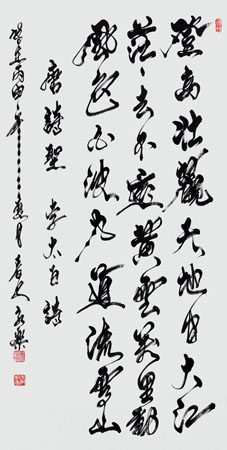 登高壯觀天地間大江
茫々去不還黃雲萬里動
風色白波九道流雪山
唐詩聖李太白詩
歲在丙申年